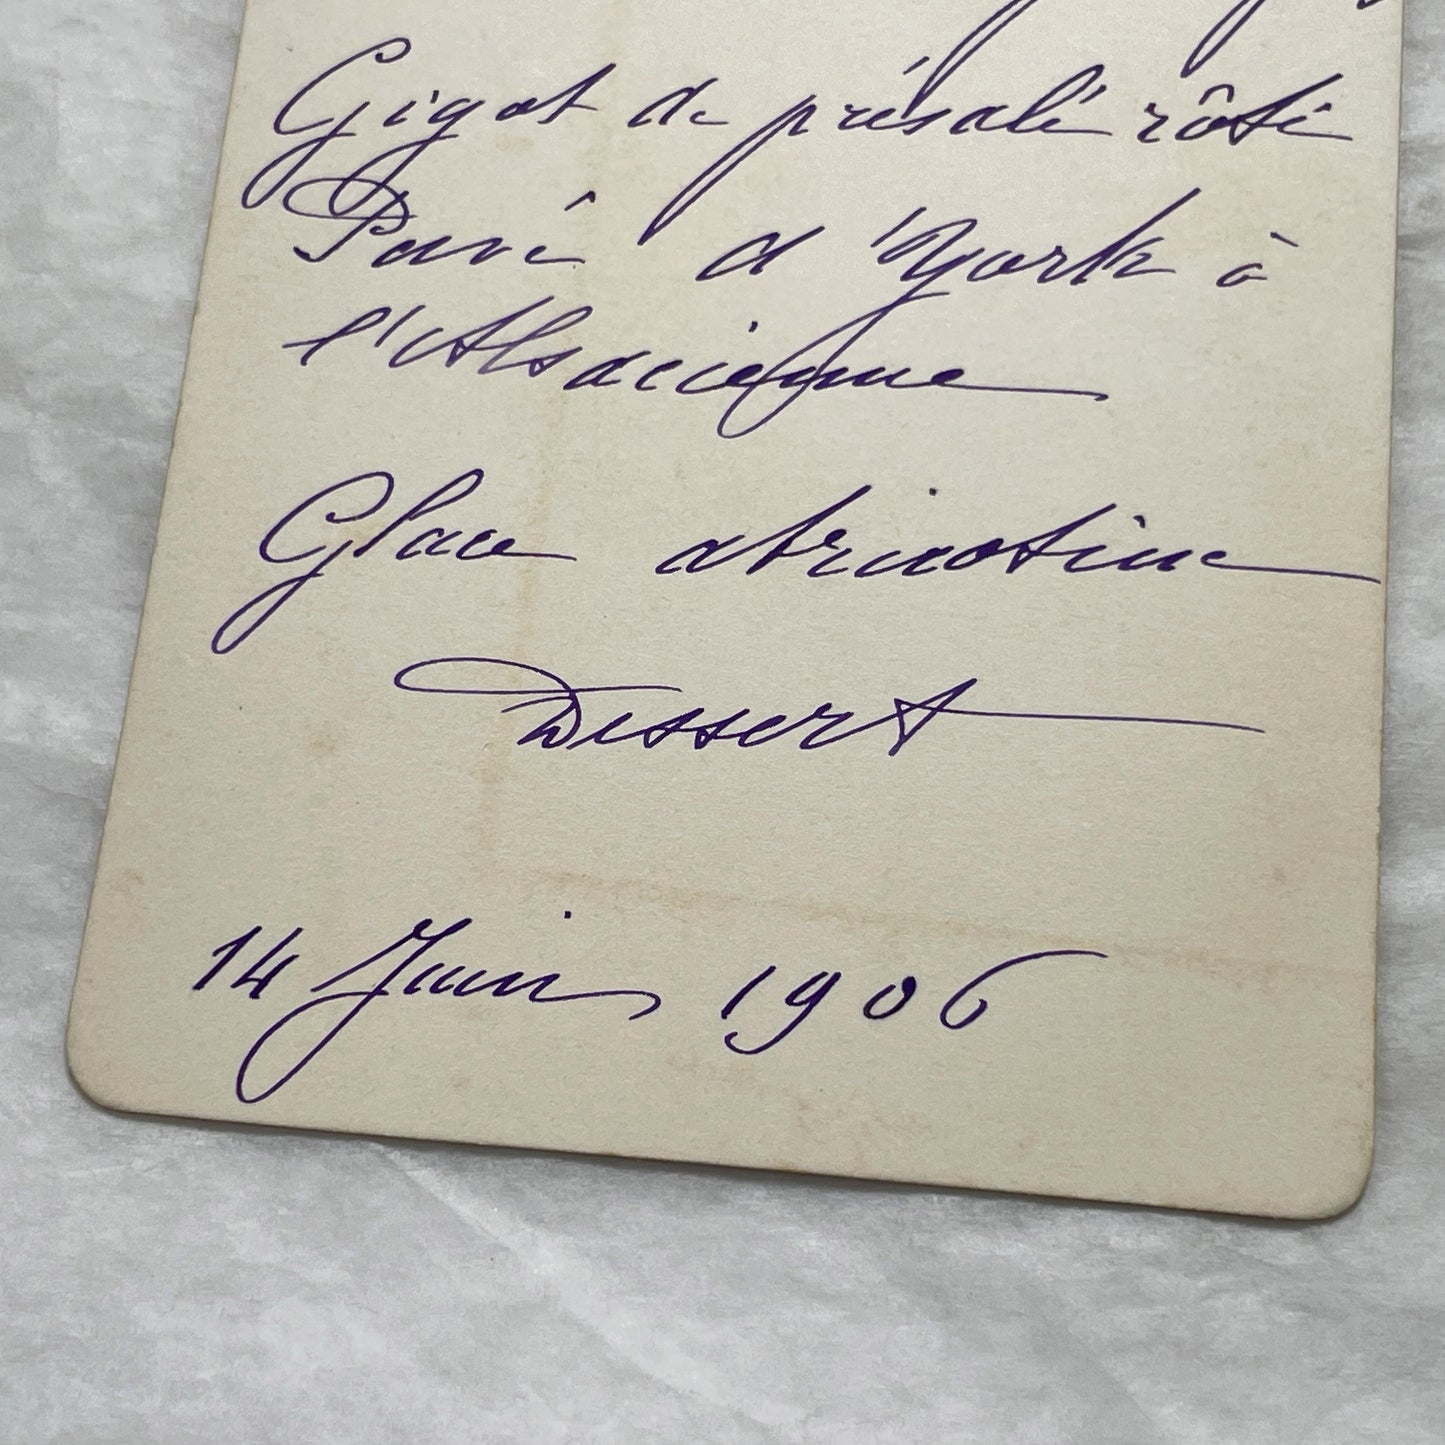 Gigot de présalé rôti
Pavé d'York à
l'Alsacienne
Glace
Dessert
14 Juin 1906